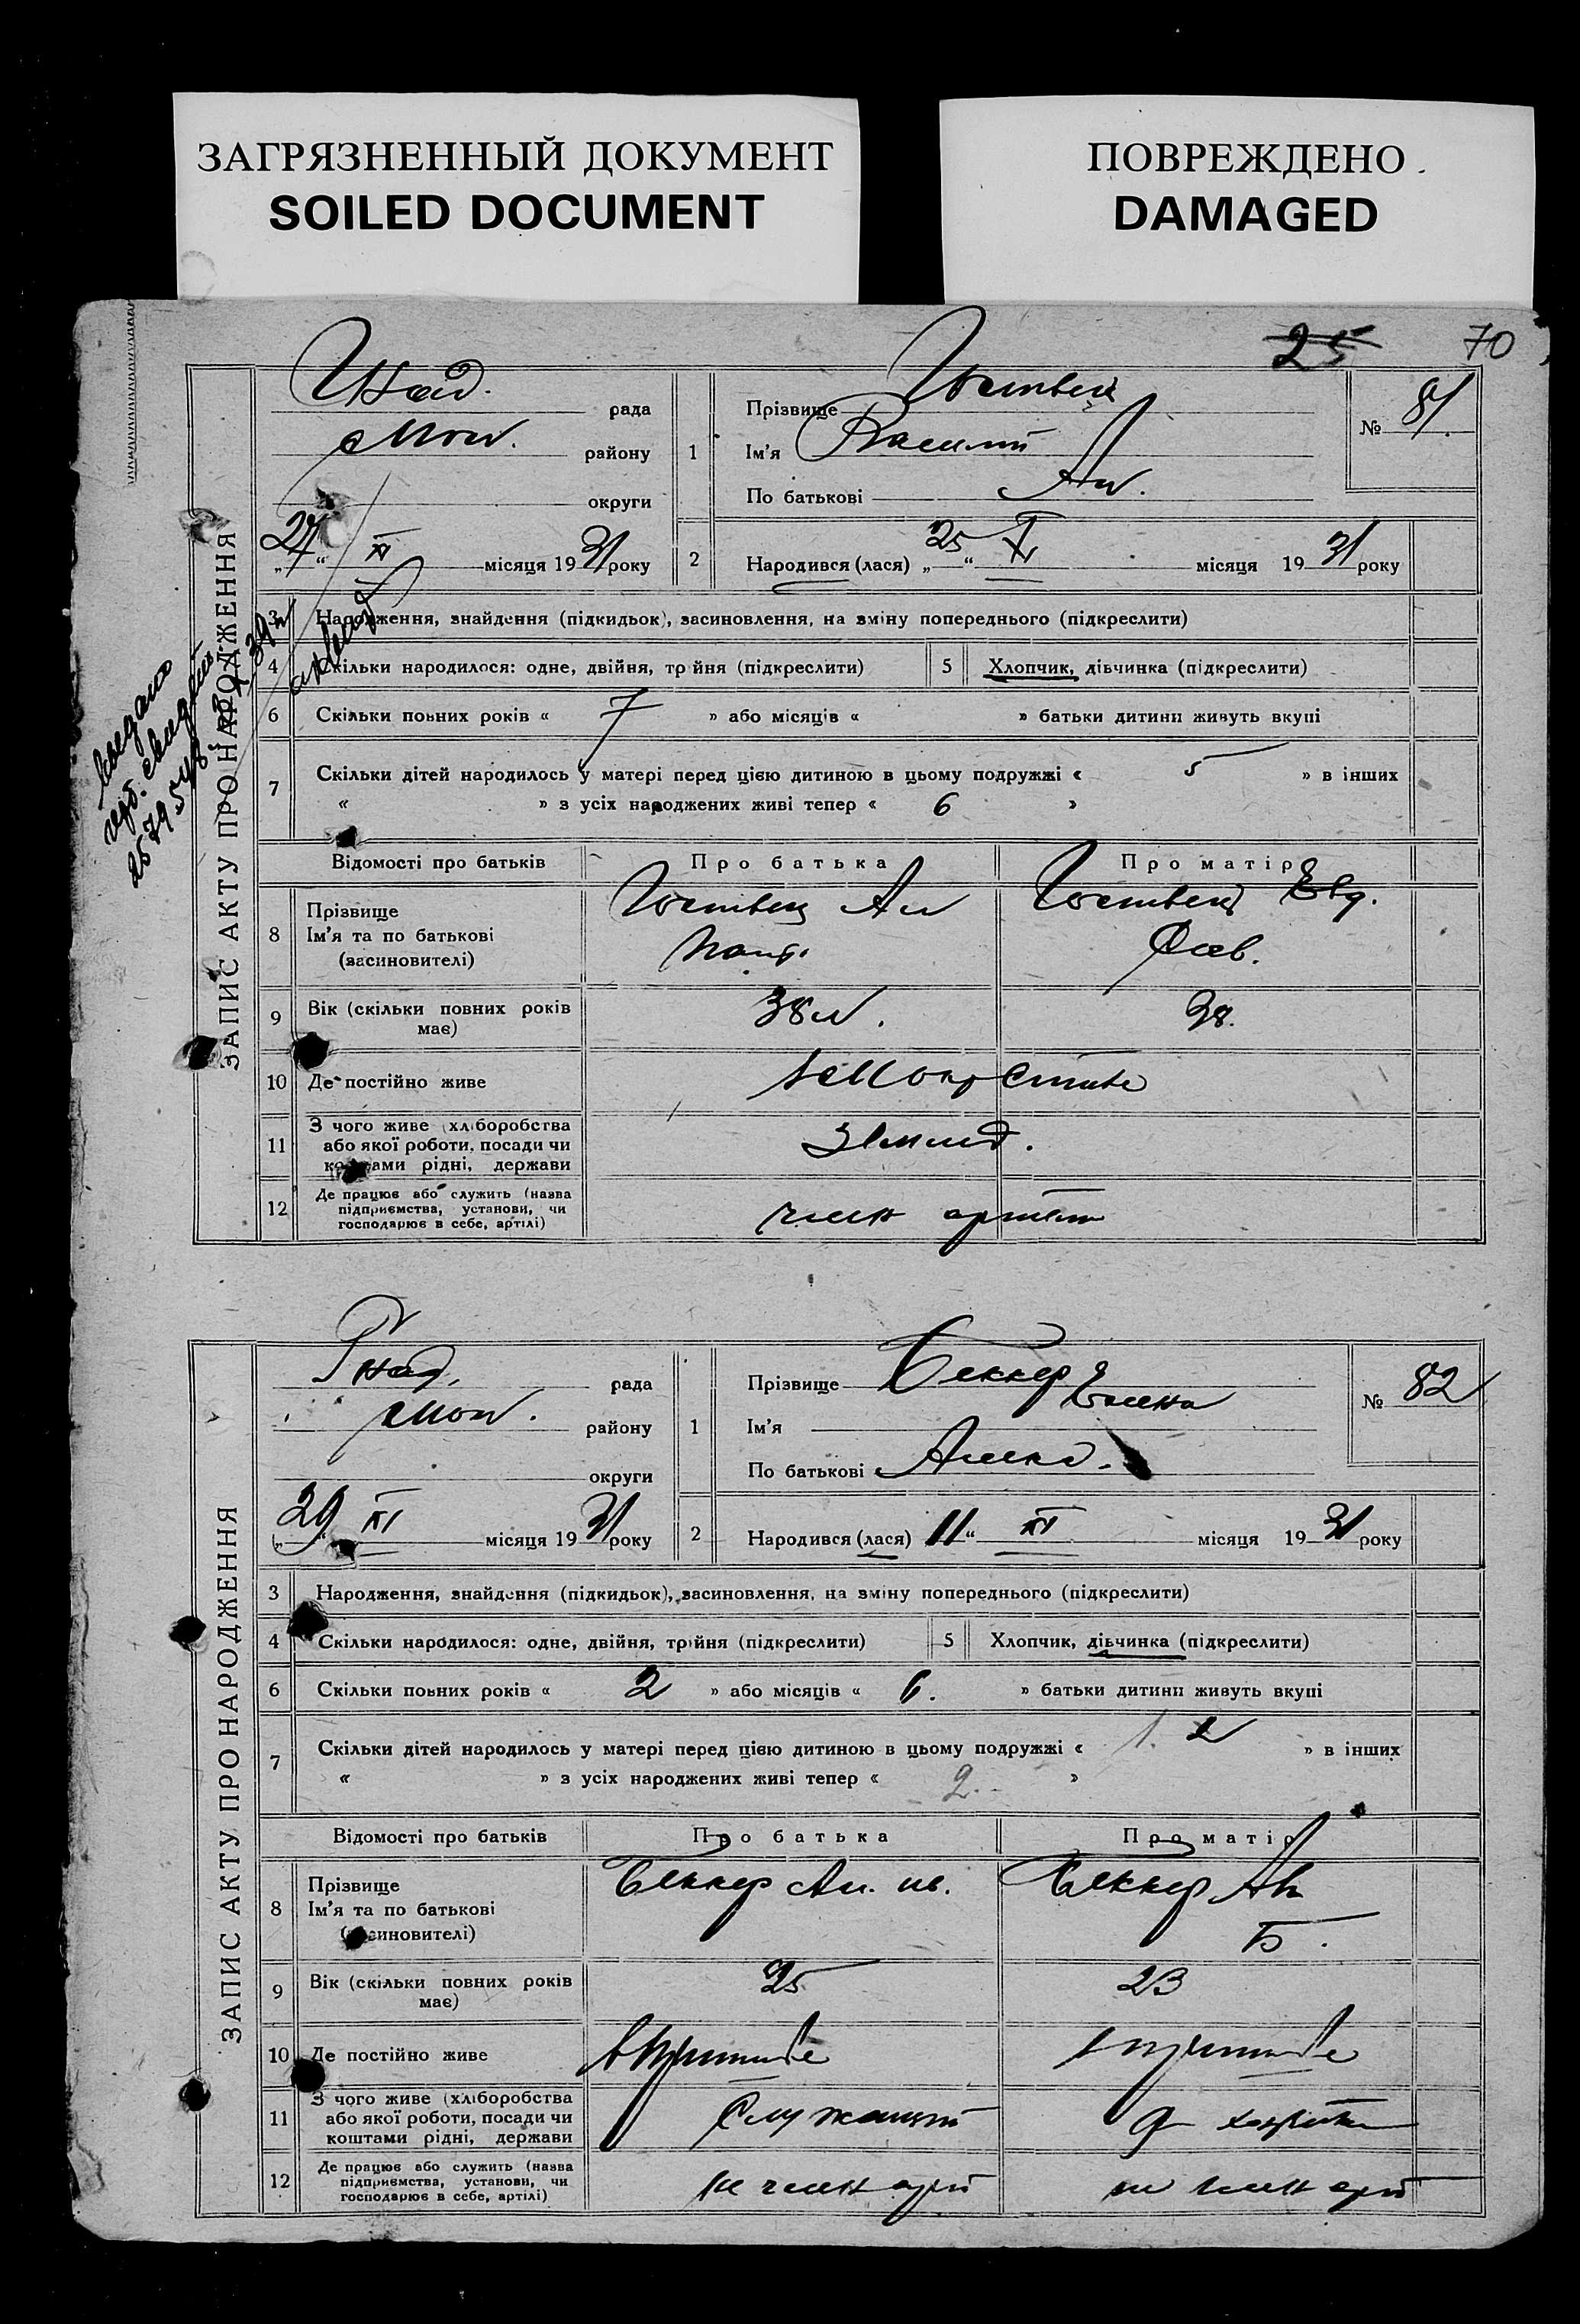 ЗАГРЯЗНЕННЫЙ ДОКУМЕНТ
SOILED DOCUMENT
ПОВРЕЖДЕНО
DAMAGED
25 70
ЗАПИС АКТУ ПРО НАРОДЖЕННЯ
рада
району
округи
„27“ XI місяця 1931 року
1
Прізвище
Ім'я Василий
По батькові Ан.
№ 81.
2
Народився (лася) „25“ XI місяця 1931 року
3 Народження, знайдення (підкидьок), засиновлення, на зміну попереднього (підкреслити)
4 Скільки народилося: одне, двійня, трійня (підкреслити)
5 Хлопчик, дівчинка (підкреслити)
6 Скільки повних років « 7 » або місяців « » батьки дитини живуть вкупі
7 Скільки дітей народилось у матері перед цією дитиною в цьому подружжі « 5 » в інших
« » з усіх народжених живі тепер « 6 »
Відомості про батьків Про батька Про матір
8 Прізвище
Ім'я та по батькові
(засиновителі)
9 Вік (скільки повних років має) 38 л. 38.
10 Де постійно живе
11 З чого живе (хліборобства
або якої роботи, посади чи
коштами рідні, держави
12 Де працює або служить (назва
підприємства, установи, чи
господарює в себе, артілі)
член артели
ЗАПИС АКТУ ПРО НАРОДЖЕННЯ
рада
району
округи
„29“ XI місяця 1931 року
1
Прізвище Беккер
Ім'я Елена
По батькові Алекс.
№ 82
2
Народився (лася) „11“ XI місяця 1931 року
3 Народження, знайдення (підкидьок), засиновлення, на зміну попереднього (підкреслити)
4 Скільки народилося: одне, двійня, трійня (підкреслити)
5 Хлопчик, дівчинка (підкреслити)
6 Скільки повних років « 2 » або місяців « 6. » батьки дитини живуть вкупі
7 Скільки дітей народилось у матері перед цією дитиною в цьому подружжі « 1. 2 » в інших
« » з усіх народжених живі тепер « 2. »
Відомості про батьків Про батька Про матір
8 Прізвище
Ім'я та по батькові
(засиновителі)
Беккер Ал. ив. Беккер Ан
Б.
9 Вік (скільки повних років має) 25 23
10 Де постійно живе
11 З чого живе (хліборобства
або якої роботи, посади чи
коштами рідні, держави
Служащий
12 Де працює або служить (назва
підприємства, установи, чи
господарює в себе, артілі)
не член арт не член арт